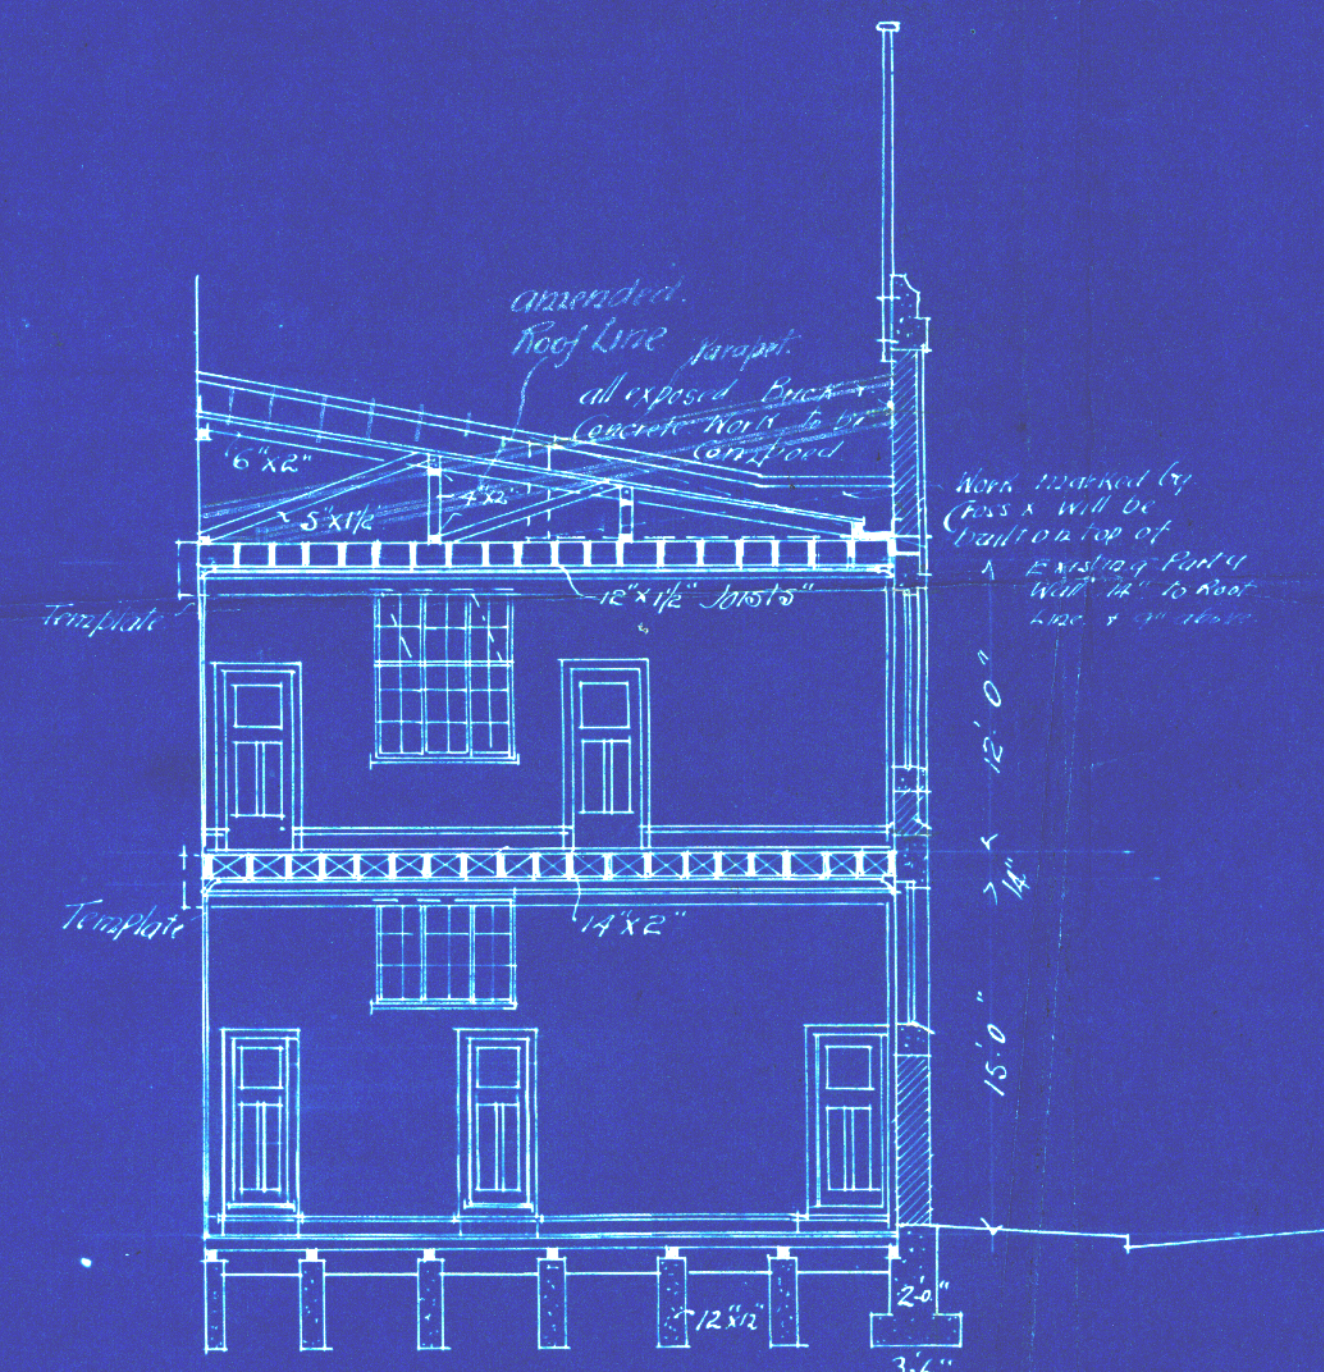 amended.
Roof Line
Parapet.
all exposed Brick &
Concrete Work to be
6"x2"
4"x2"
5"x1½"
Work marked by
Cross x will be
built on top of
Existing Party
Wall 14" to Roof
Line & 9" above.
12"x1½" Joists"
Template
12'.0"
14"
Template
14"x2"
15'.0"
2'.0"
12"x12"
3'.6"